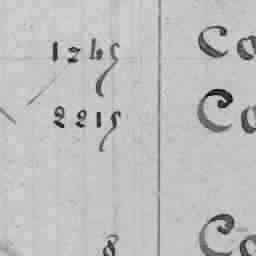 1245 Co
2215 Co
8 Co